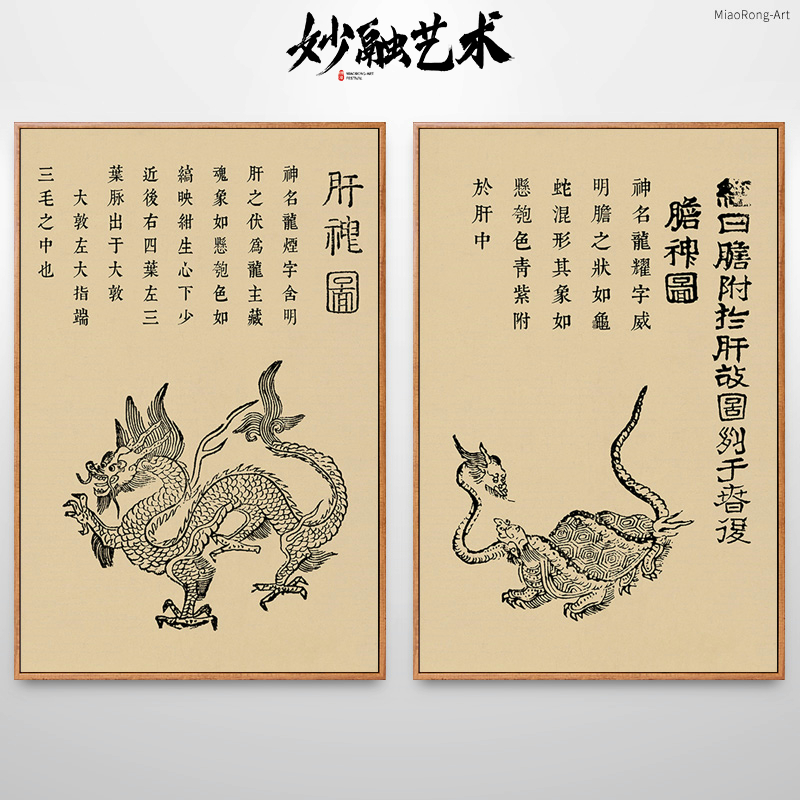 MiaoRong-Art
妙融艺术
MIAORONG-ART
FESTIVAL
肝神圖
神名龍煙字含明
肝之伏為龍主藏
魂象如懸匏色如
縞映紺生心下少
近後右四葉左三
葉脉出于大敦
大敦左大指端
三毛之中也
經曰膽附於肝故圖列于春後
膽神圖
神名龍耀字威
明膽之狀如龜
蛇混形其象如
懸匏色青紫附
於肝中